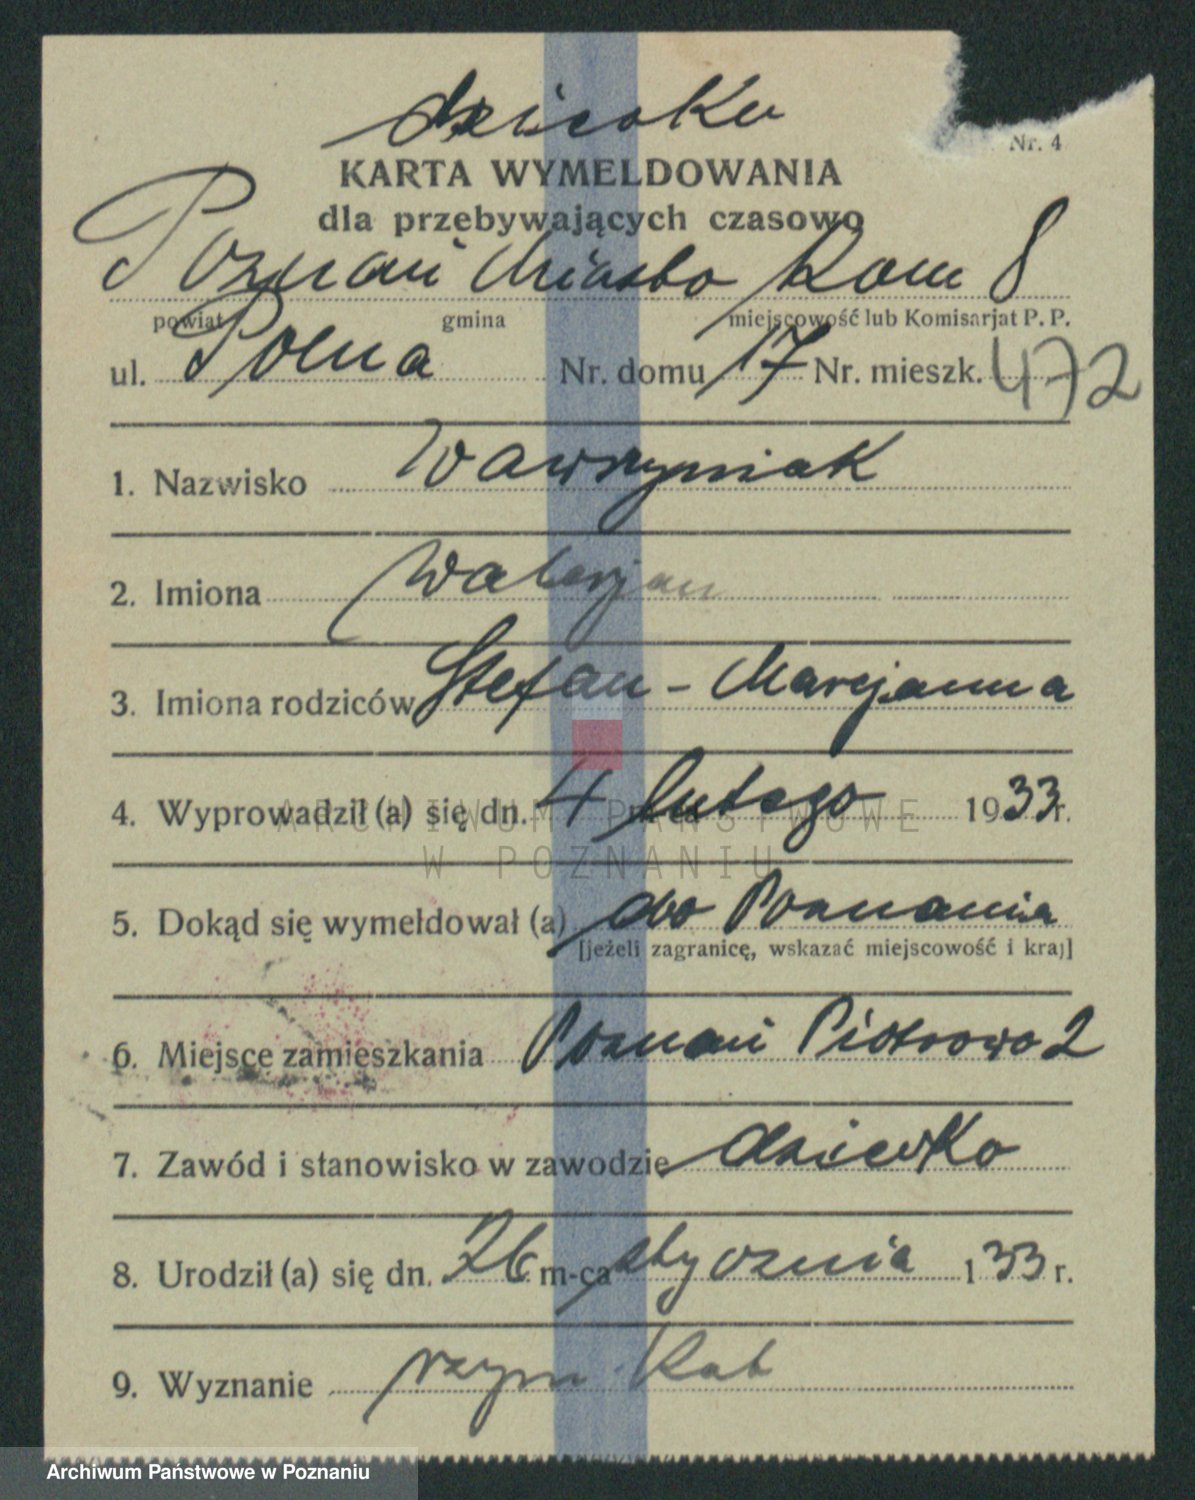 dziecko
Nr. 4
KARTA WYMELDOWANIA
dla przebywających czasowo
Poznań Miasto Kom 8
powiat gmina miejscowość lub Komisarjat P. P.
ul. Polna Nr. domu 17 Nr. mieszk. 472
1. Nazwisko Wawrzyniak
2. Imiona Walerjan
3. Imiona rodziców Stefan - Marcjanna
4. Wyprowadził (a) się dn. 4 lutego 1933 r.
ARCHIWUM PAŃSTWOWE
W POZNANIU
5. Dokąd się wymeldował (a) do Poznania
[jeżeli zagranicę, wskazać miejscowość i kraj]
6. Miejsce zamieszkania Poznań Piotrowo 2
7. Zawód i stanowisko w zawodzie dziecko
8. Urodził (a) się dn. 26 m-ca stycznia 133 r.
9. Wyznanie rzym. Kat
Archiwum Państwowe w Poznaniu